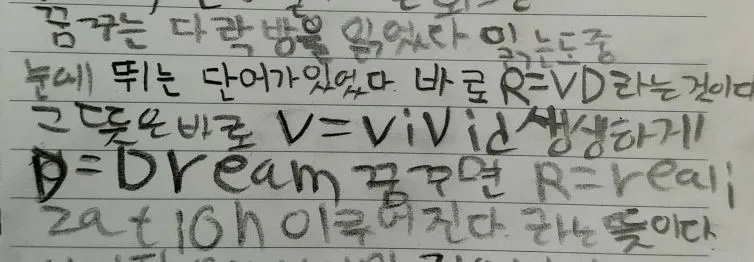 꿈꾸는 다락방을 읽었다 읽는도중
눈에 뛰는 단어가있었다. 바로 R=VD라는것이다
그뜻은바로 V=ViVid생생하게
D=Dream꿈꾸면 R=reali
zation이루어진다. 라는 뜻이다.